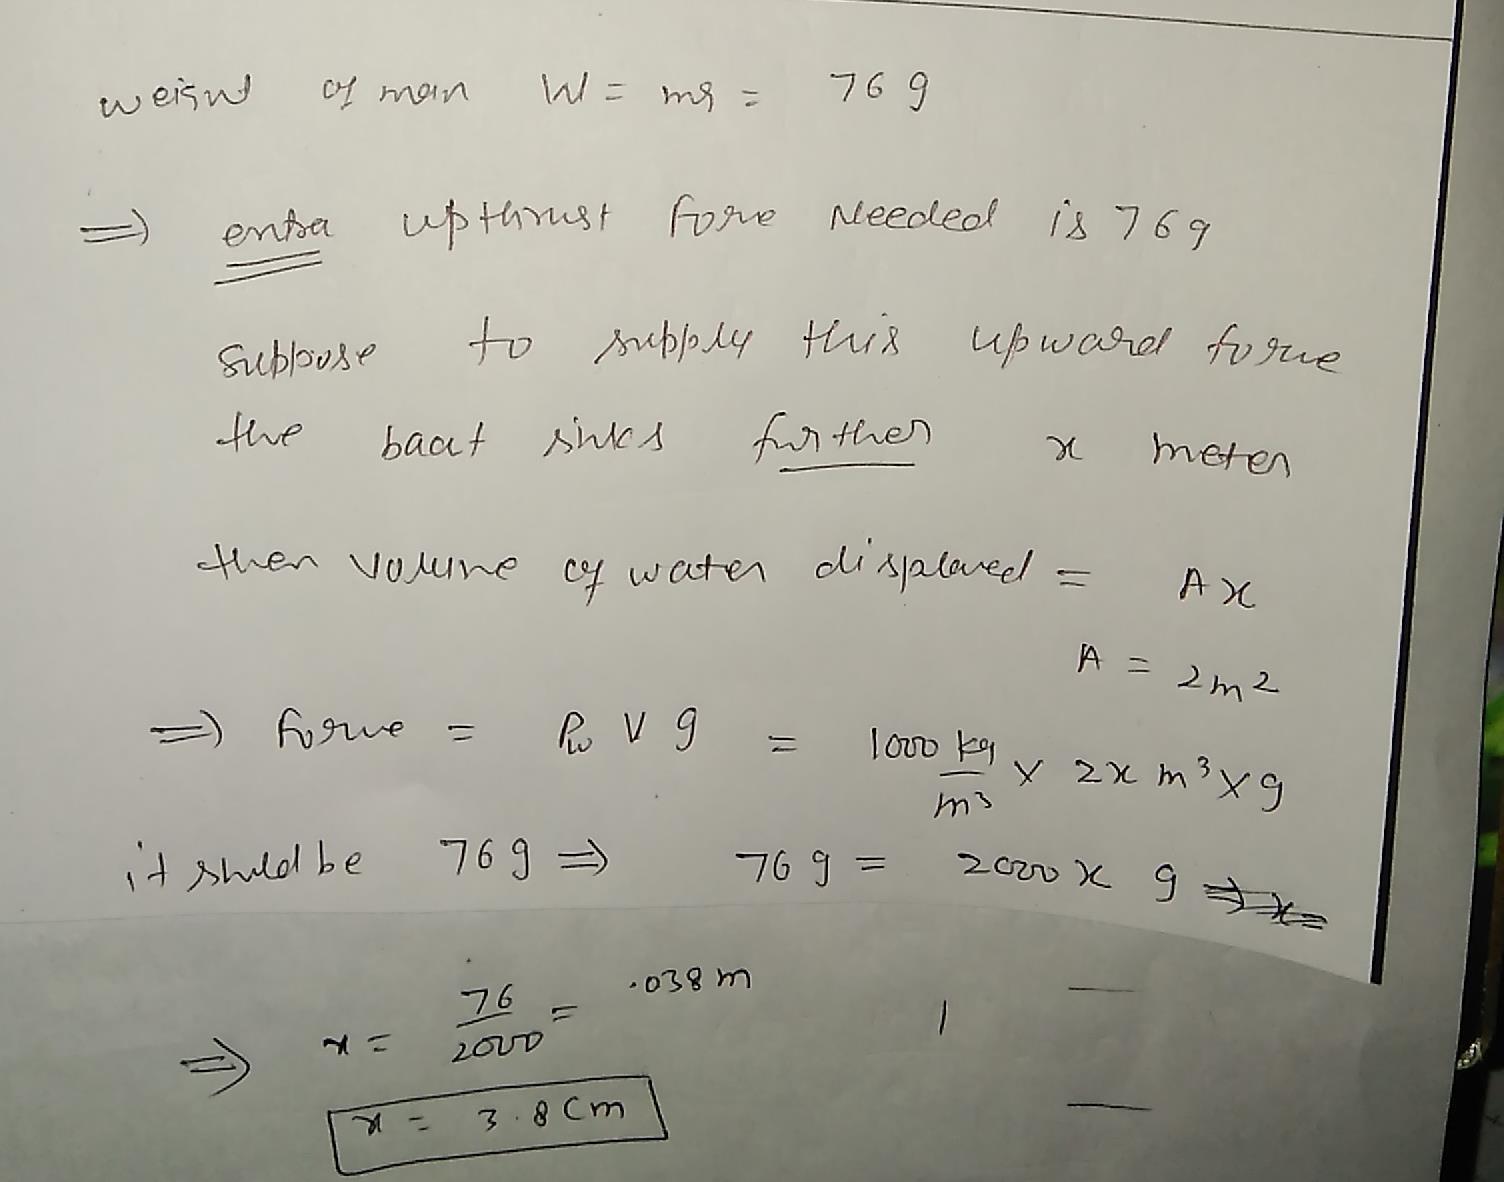 weight of man W = mg = 76 g
⇒ extra upthrust force needed is 76g
suppose to supply this upward force
the boat sinks further x meter
then volume of water displaced = Ax
A = 2m²
⇒ force = ρw V g = 1000 kg/m³ × 2x m³ × g
it should be 76g ⇒ 76 g = 2000 x g
⇒ x = 76/2000 = .038 m
x = 3.8 cm